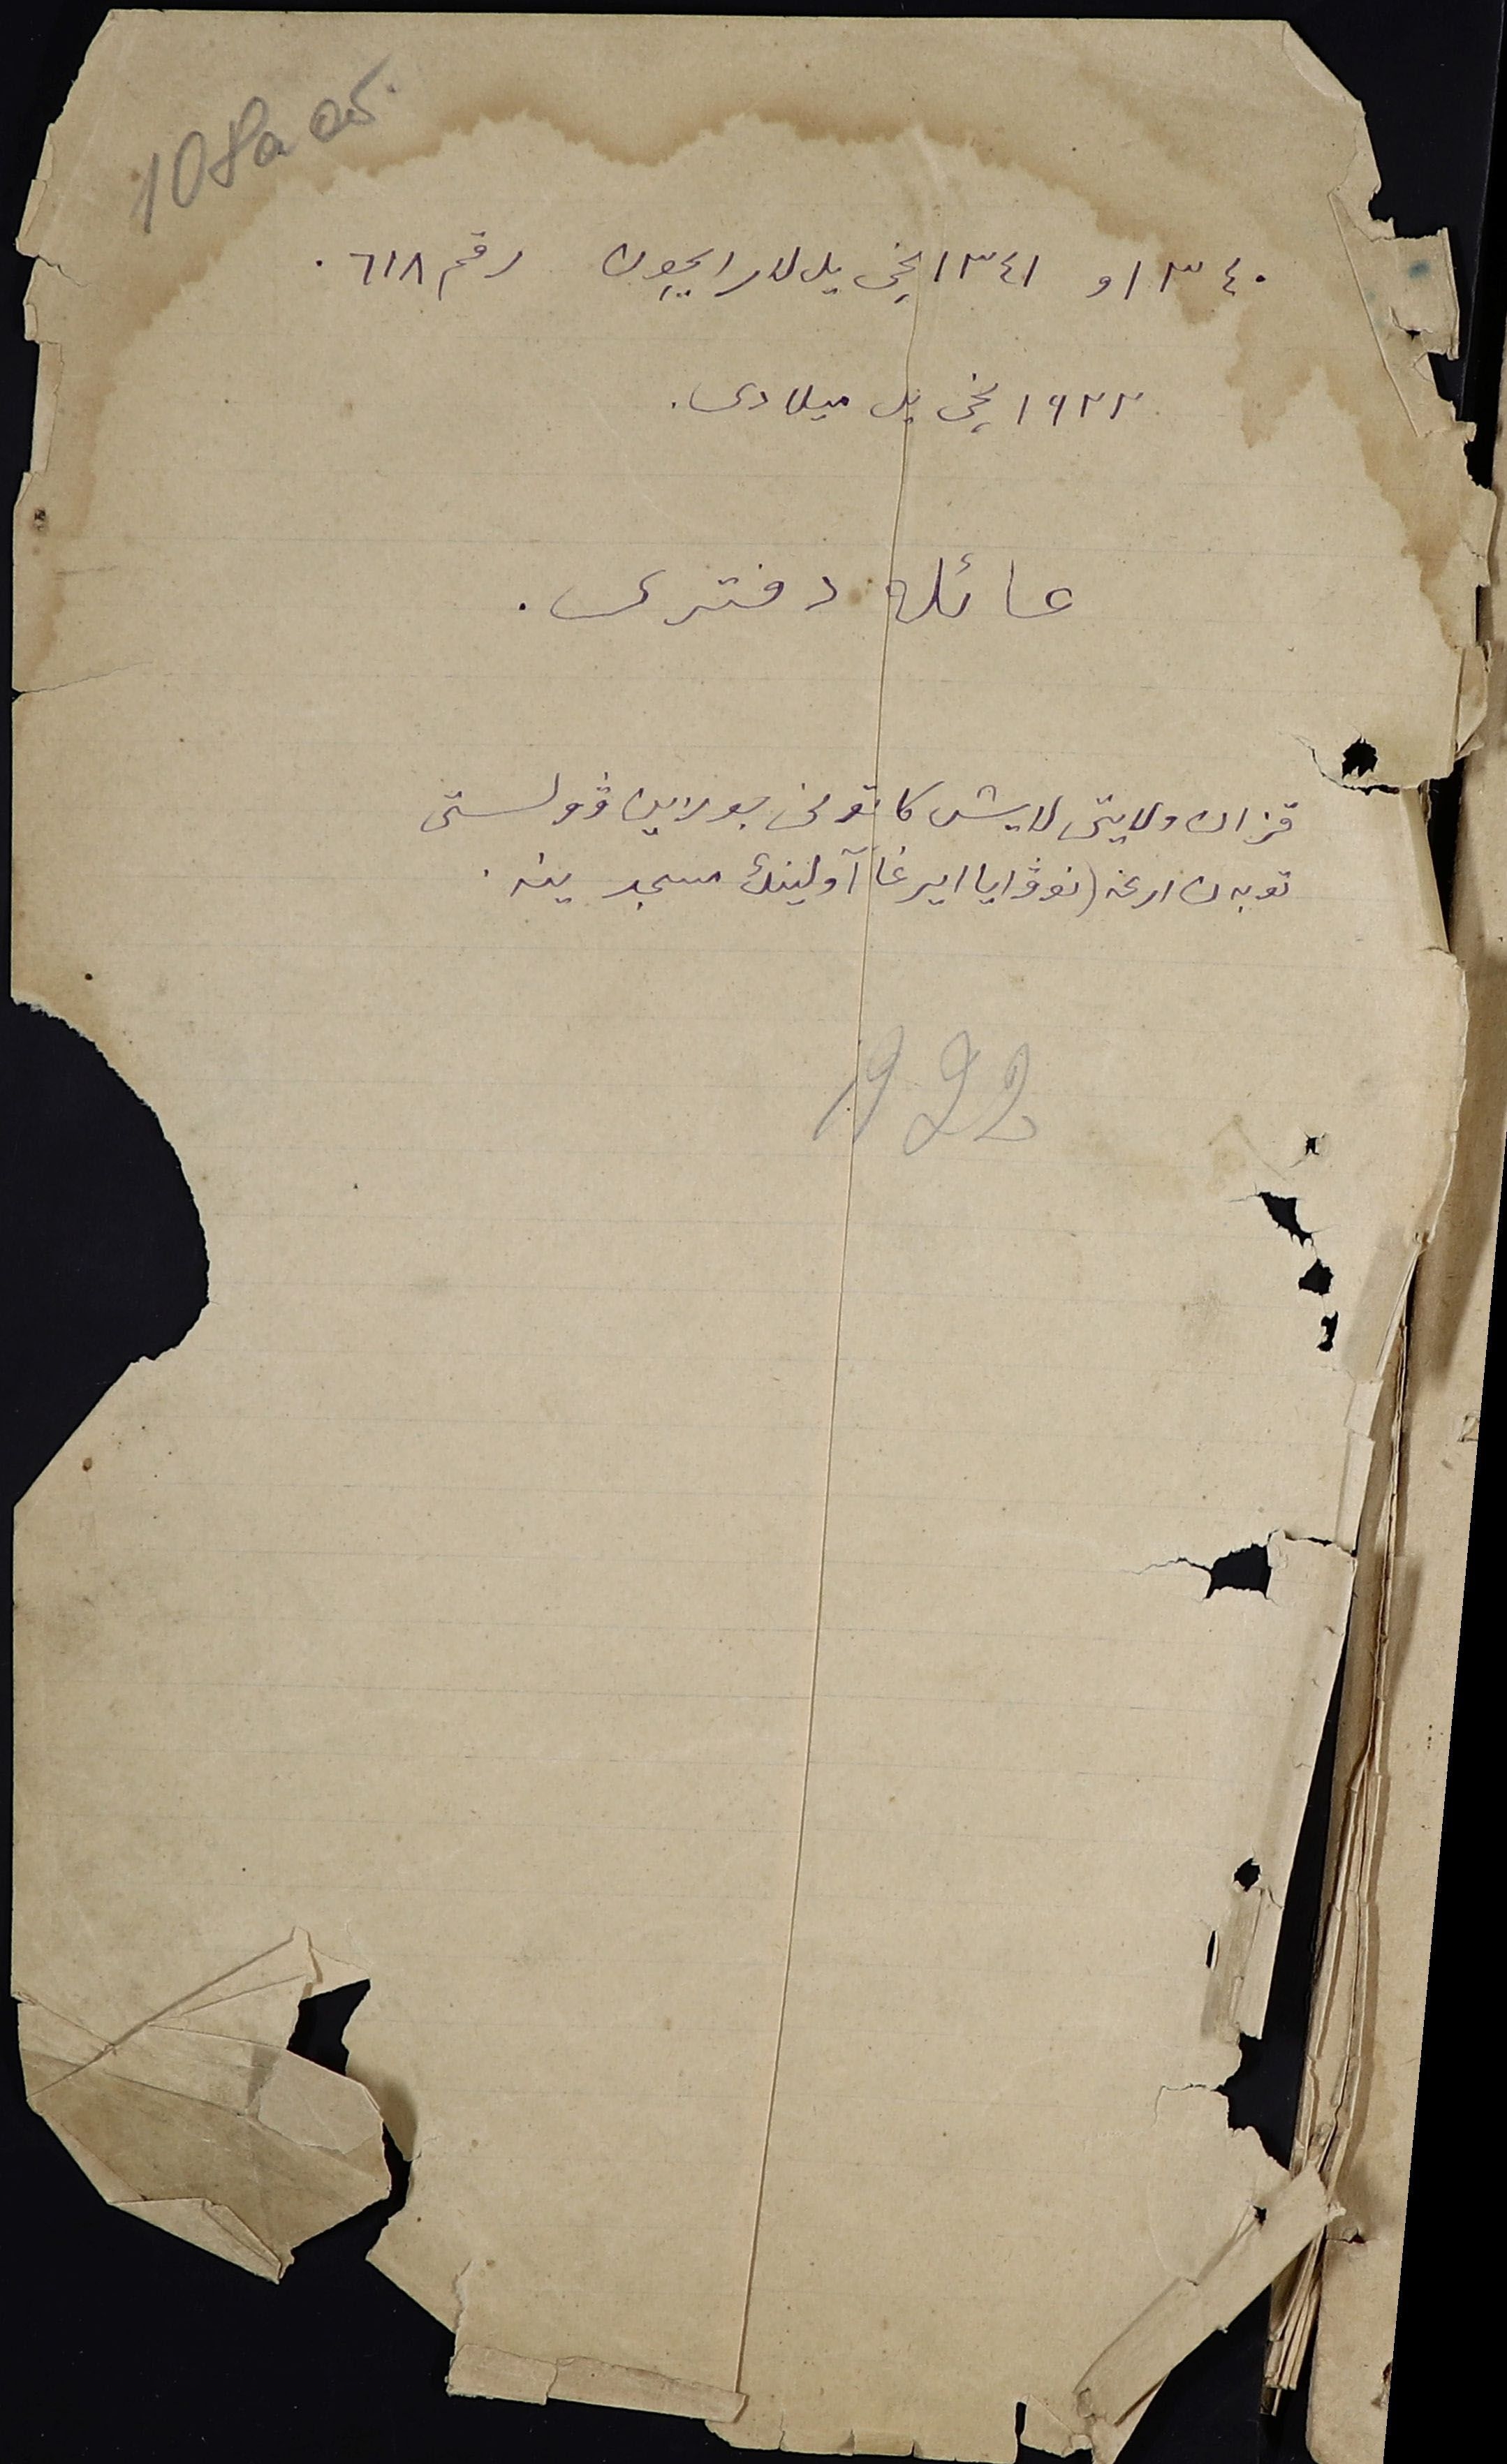 108а об.
١٣٤٠ و ١٣٤١ نچی یل لار ایچون رقم ٦١٨.
١٩٢٢ نچی یل میلادی.
عائله دفتری.
قزان ولایتی لایش کانتونی بوراین ڤولستی
توبه‌ن ارغه (نوڤایا ایرغا آولینڭ مسجد ینه.
922